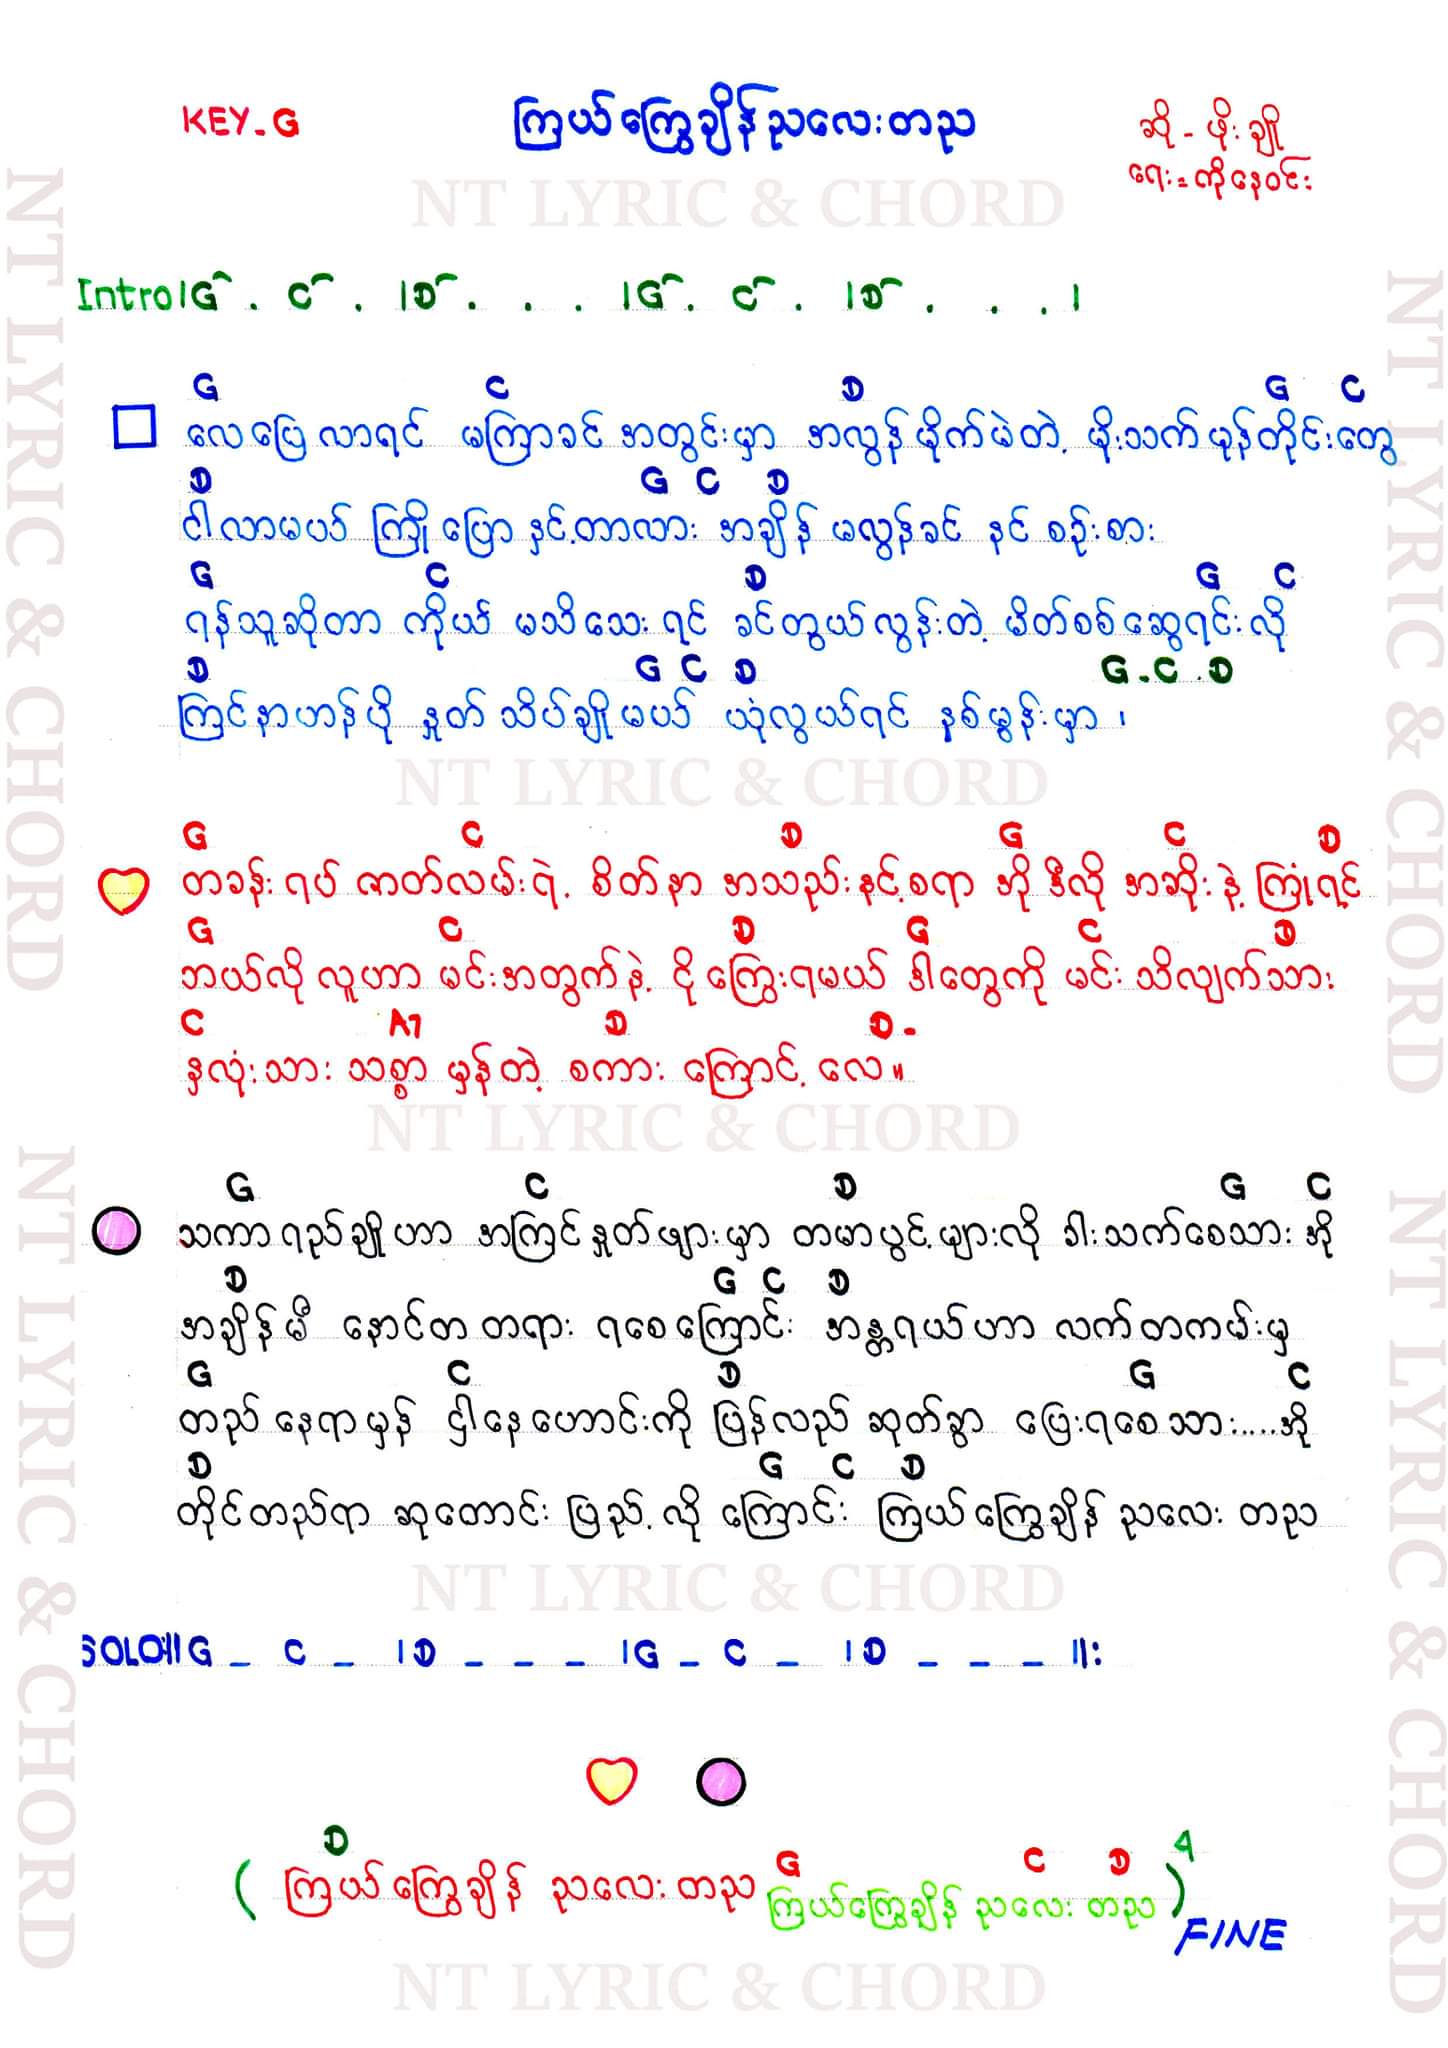 KEY-G
ကြယ်ကြွေချိန်ညလေးတည
ဆို - ဖိုးချို
ရေး = ကိုနေဝင်း
NT LYRIC & CHORD
Intro|G . C . |D . . . |G . C . |D . . . |
G C D G C
လေပြေလာရင် မကြာခင်အတွင်းမှာ အလွန်မိုက်မဲတဲ့ မိုးသက်မုန်တိုင်းတွေ
D G C D
ငါလာမယ် ကြိုပြောနှင့်တာလား အချိန်မလွန်ခင် နင်စဉ်းစား
G C D G C
ရန်သူဆိုတာ ကိုယ်မသိသေးရင် ခင်တွယ်လွန်းတဲ့ မိတ်စစ်ဆွေရင်းလို
D G C D G . C . D
ကြင်နာဟန်ပို နှုတ်သိပ်ချိုမယ် ယုံလွယ်ရင် နှစ်မွန်းမှာ ၊
NT LYRIC & CHORD
G C D G C D
တခန်းရပ် ဇာတ်လမ်းရဲ့ စိတ်နာ အသည်းနင့်စရာ အို ဒီလို အဆိုးနဲ့ ကြုံရင်
G C D G C D
ဘယ်လိုလူဟာ မင်းအတွက်နဲ့ ငိုကြွေးရမယ် ဒါတွေကို မင်း သိလျက်သား
C A7 D D -
နှလုံးသား သစ္စာ မှန်တဲ့ စကား ကြောင့် လေ။
NT LYRIC & CHORD
G C D G C
သကာရည်ချိုဟာ အကြင်နှုတ်ဖျားမှာ တမာပွင့်များလို ခါးသက်စေသား အို
D G C D
အချိန်မီ နောင်တ တရား ရစေကြောင်း အန္တရယ်ဟာ လက်တကမ်းမှ
G C D G C
တည်နေရာမှန် ငှါနေဟောင်းကို ပြန်လည်ဆုတ်ခွာ ပြေးရစေသား....အို
D G C D
တိုင်တည်ရာ ဆုတောင်း ပြည့်လို့ကြောင်း ကြယ်ကြွေချိန် ညလေး တည
NT LYRIC & CHORD
SOLO:||G _ C _ |D _ _ _ |G _ C _ |D _ _ _ ||:
D G C D 4
( ကြယ်ကြွေချိန် ညလေးတည ကြယ်ကြွေချိန် ညလေး တည )
FINE
NT LYRIC & CHORD
NT LYRIC & CHORD
NT LYRIC & CHORD
NT LYRIC & CHORD
NT LYRIC & CHORD